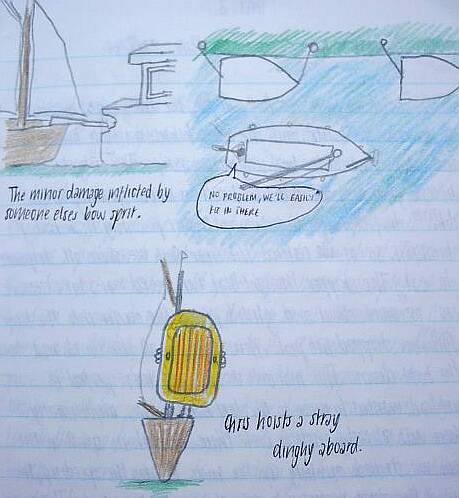 The minor damage inflicted by
someone elses bow sprit.
NO PROBLEM, WE'LL EASILY
FIT IN THERE
Chris hoists a stray
dinghy aboard.